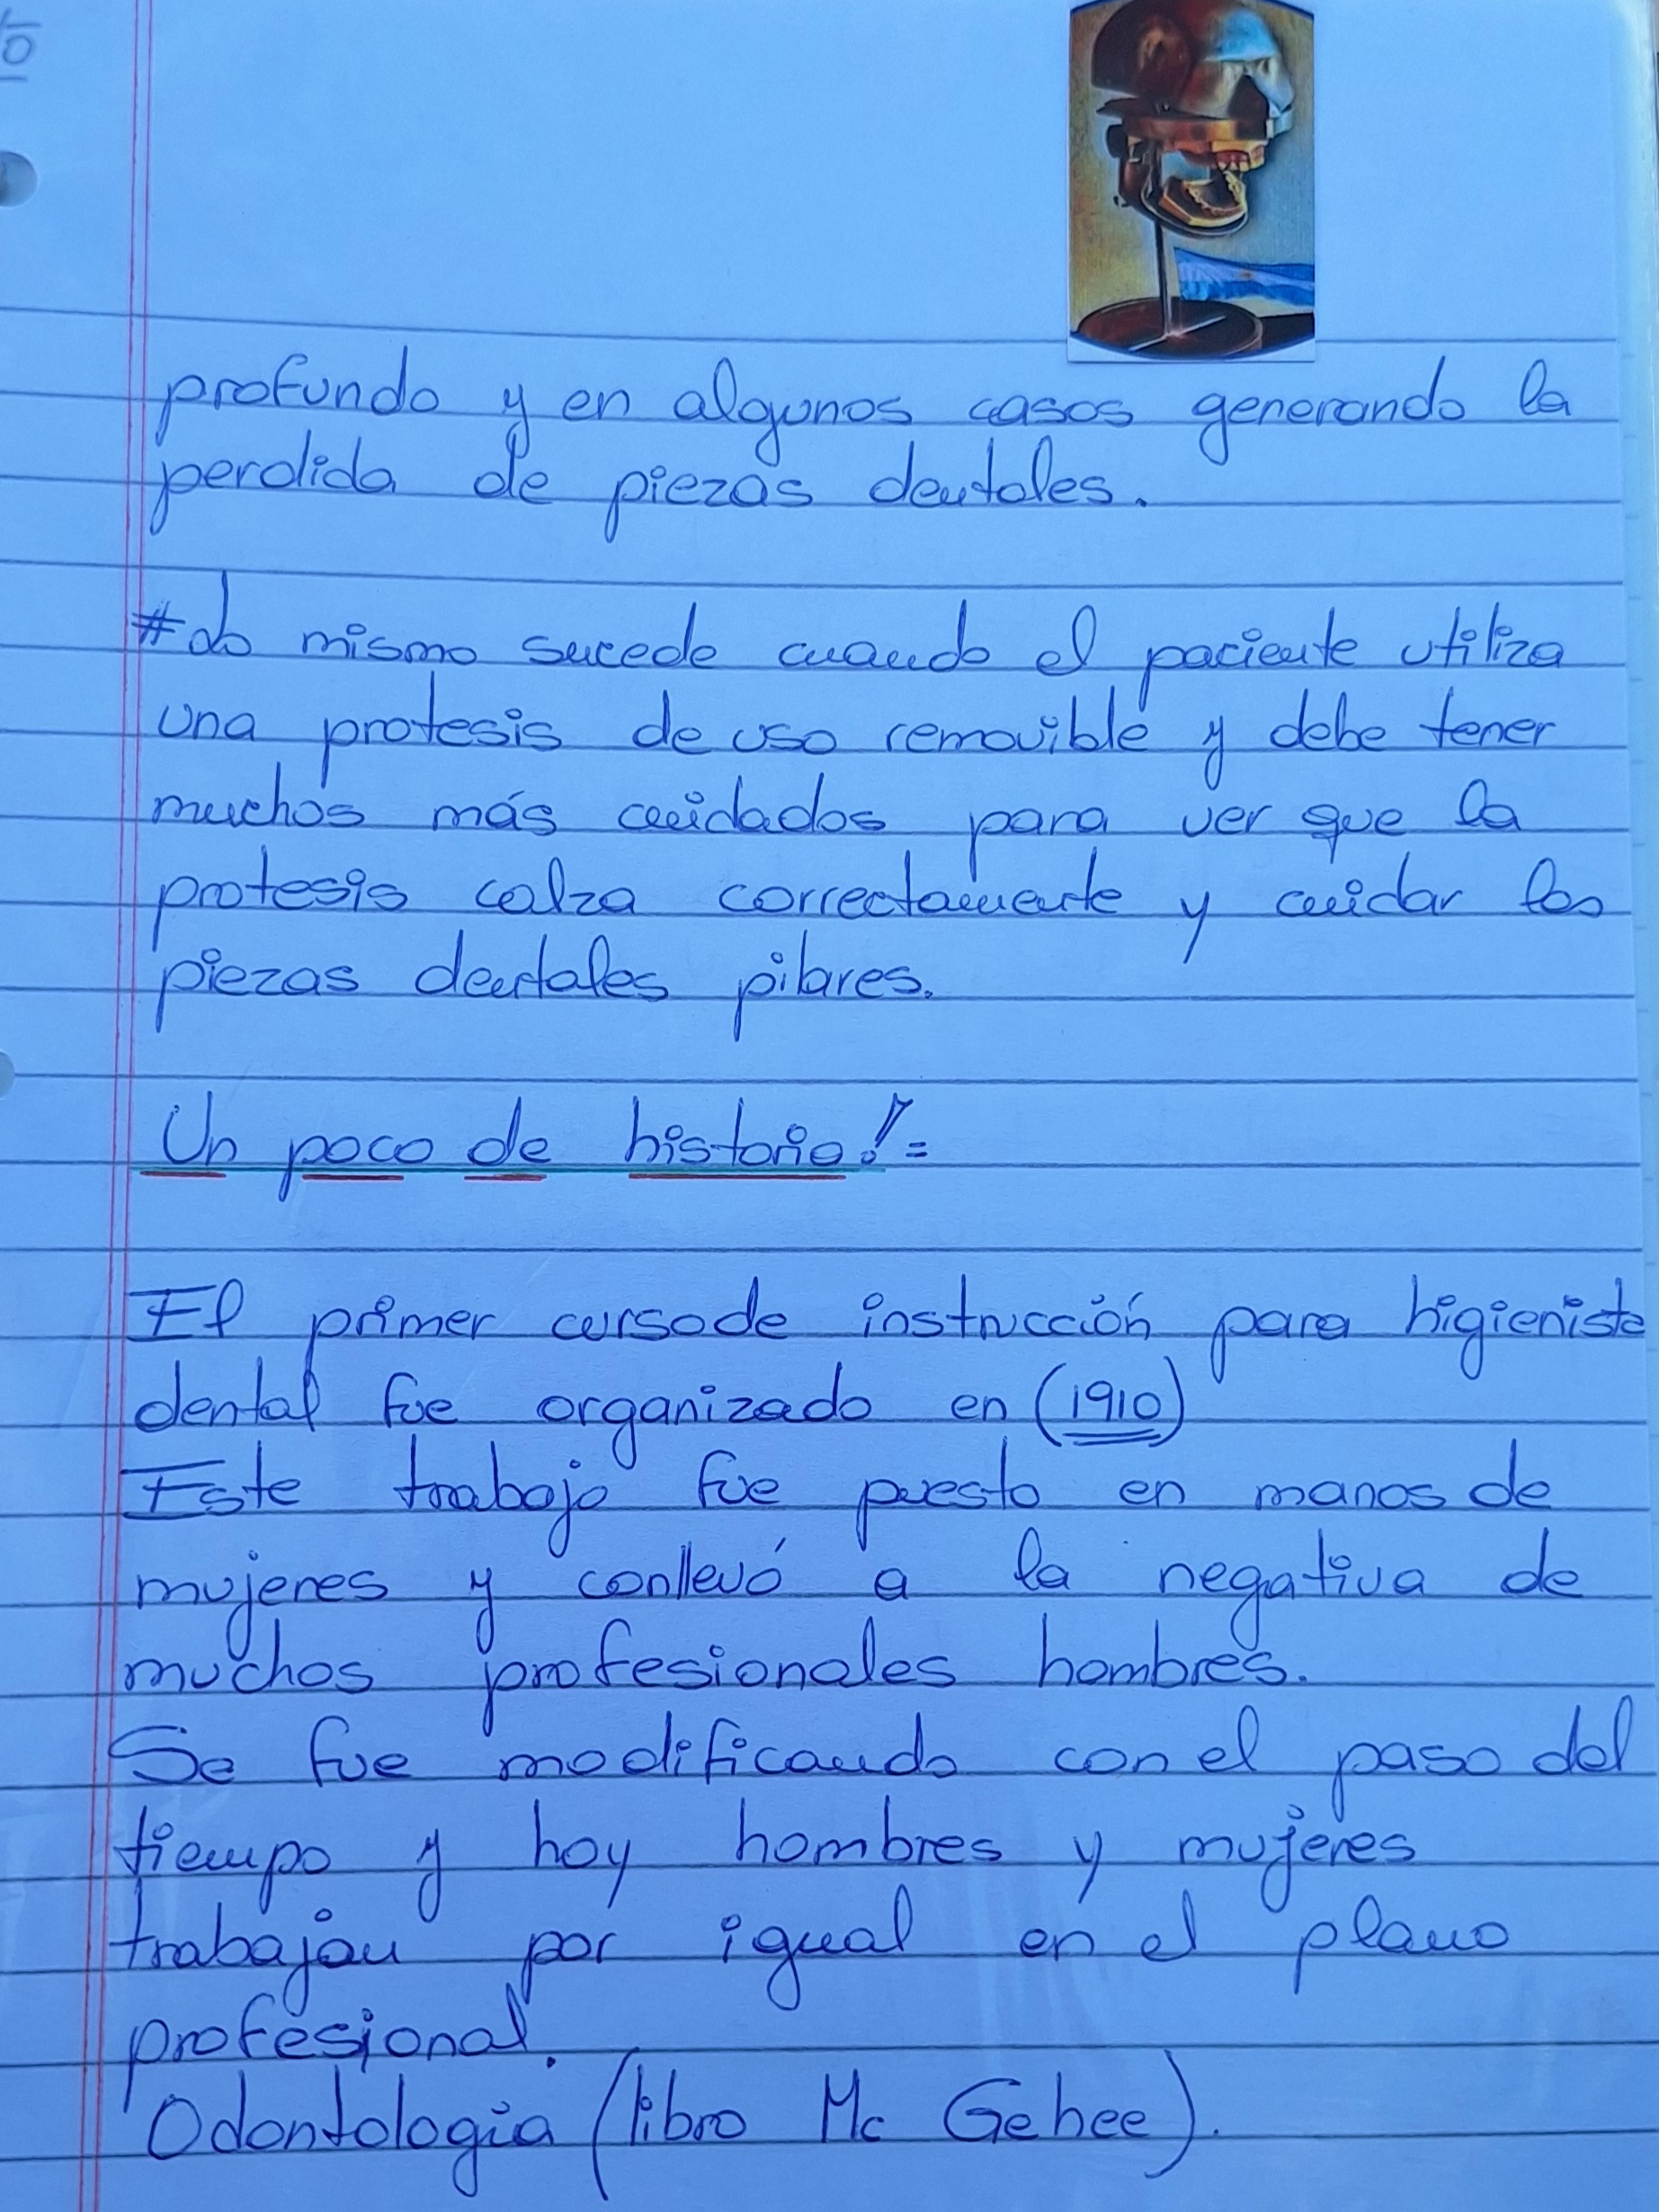 10
profundo y en algunos casos generando la
perdida de piezas dentales.
# Lo mismo sucede cuando el paciente utiliza
una protesis de uso removible y debe tener
muchos más cuidados para ver que la
protesis calza correctamente y cuidar las
piezas dentales pilares.
Un poco de historia!=
El primer curso de instrucción para higienista
dental fue organizado en (1910)
Este trabajo fue puesto en manos de
mujeres y conllevó a la negativa de
muchos profesionales hombres.
Se fue modificando con el paso del
tiempo y hoy hombres y mujeres
trabajan por igual en el plano
profesional.
Odontologia (libro Mc Gehee).